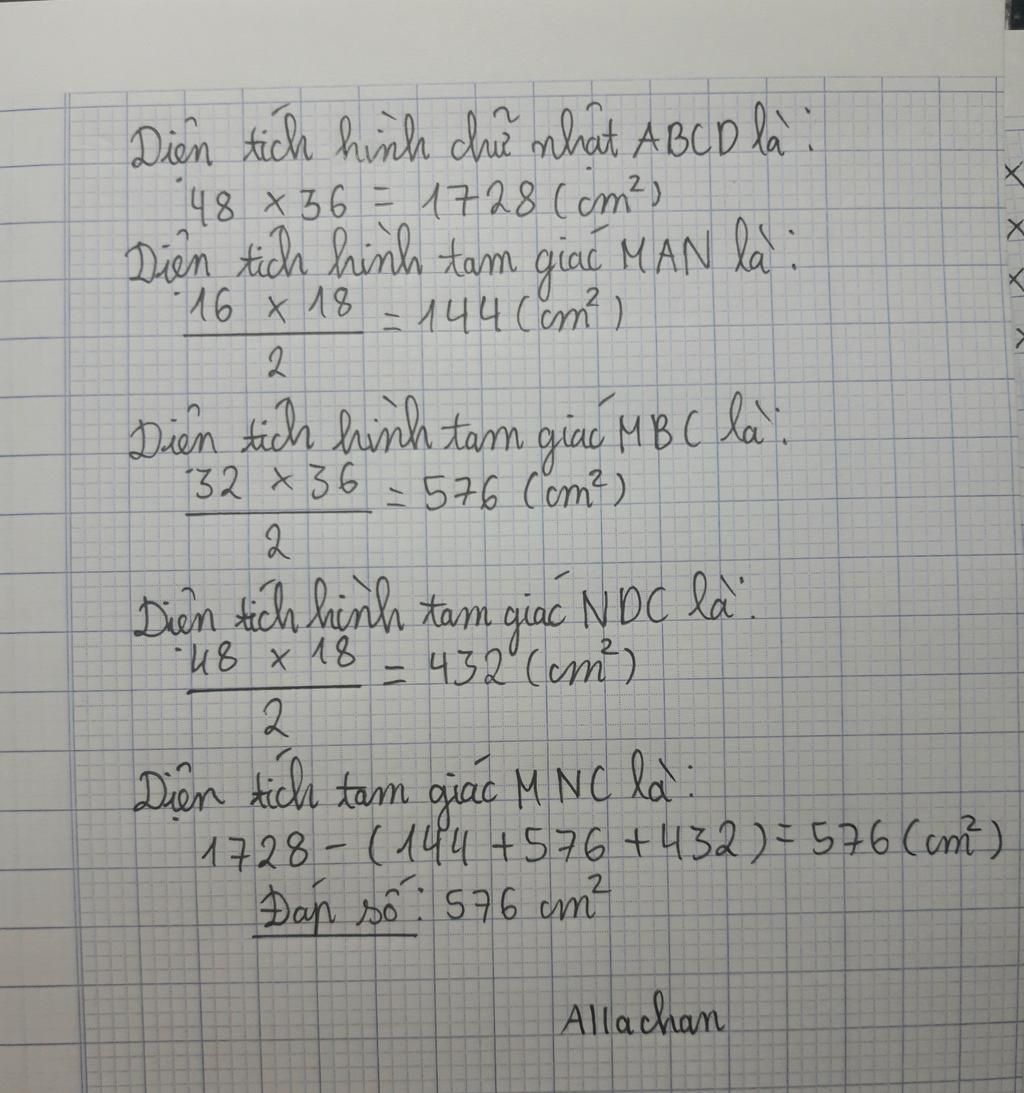 Diện tích hình chữ nhật ABCD là:
48 × 36 = 1728 (cm²)
Diện tích hình tam giác MAN là:
16 × 18 = 144 (cm²)
2
Diện tích hình tam giác MBC là:
32 × 36 = 576 (cm²)
2
Diện tích hình tam giác NDC là:
48 × 18 = 432 (cm²)
2
Diện tích tam giác MNC là:
1728 - (144 + 576 + 432) = 576 (cm²)
Đáp số: 576 cm²
Allachan